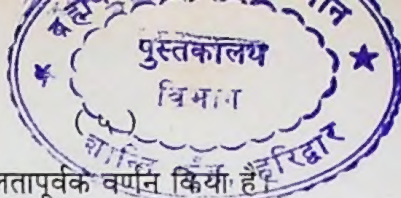 ब्रह्म
न
पुस्तकालय
विभाग
(५)
शान्ति कुंज हरिद्वार
लतापूर्वक वर्णन किया है।